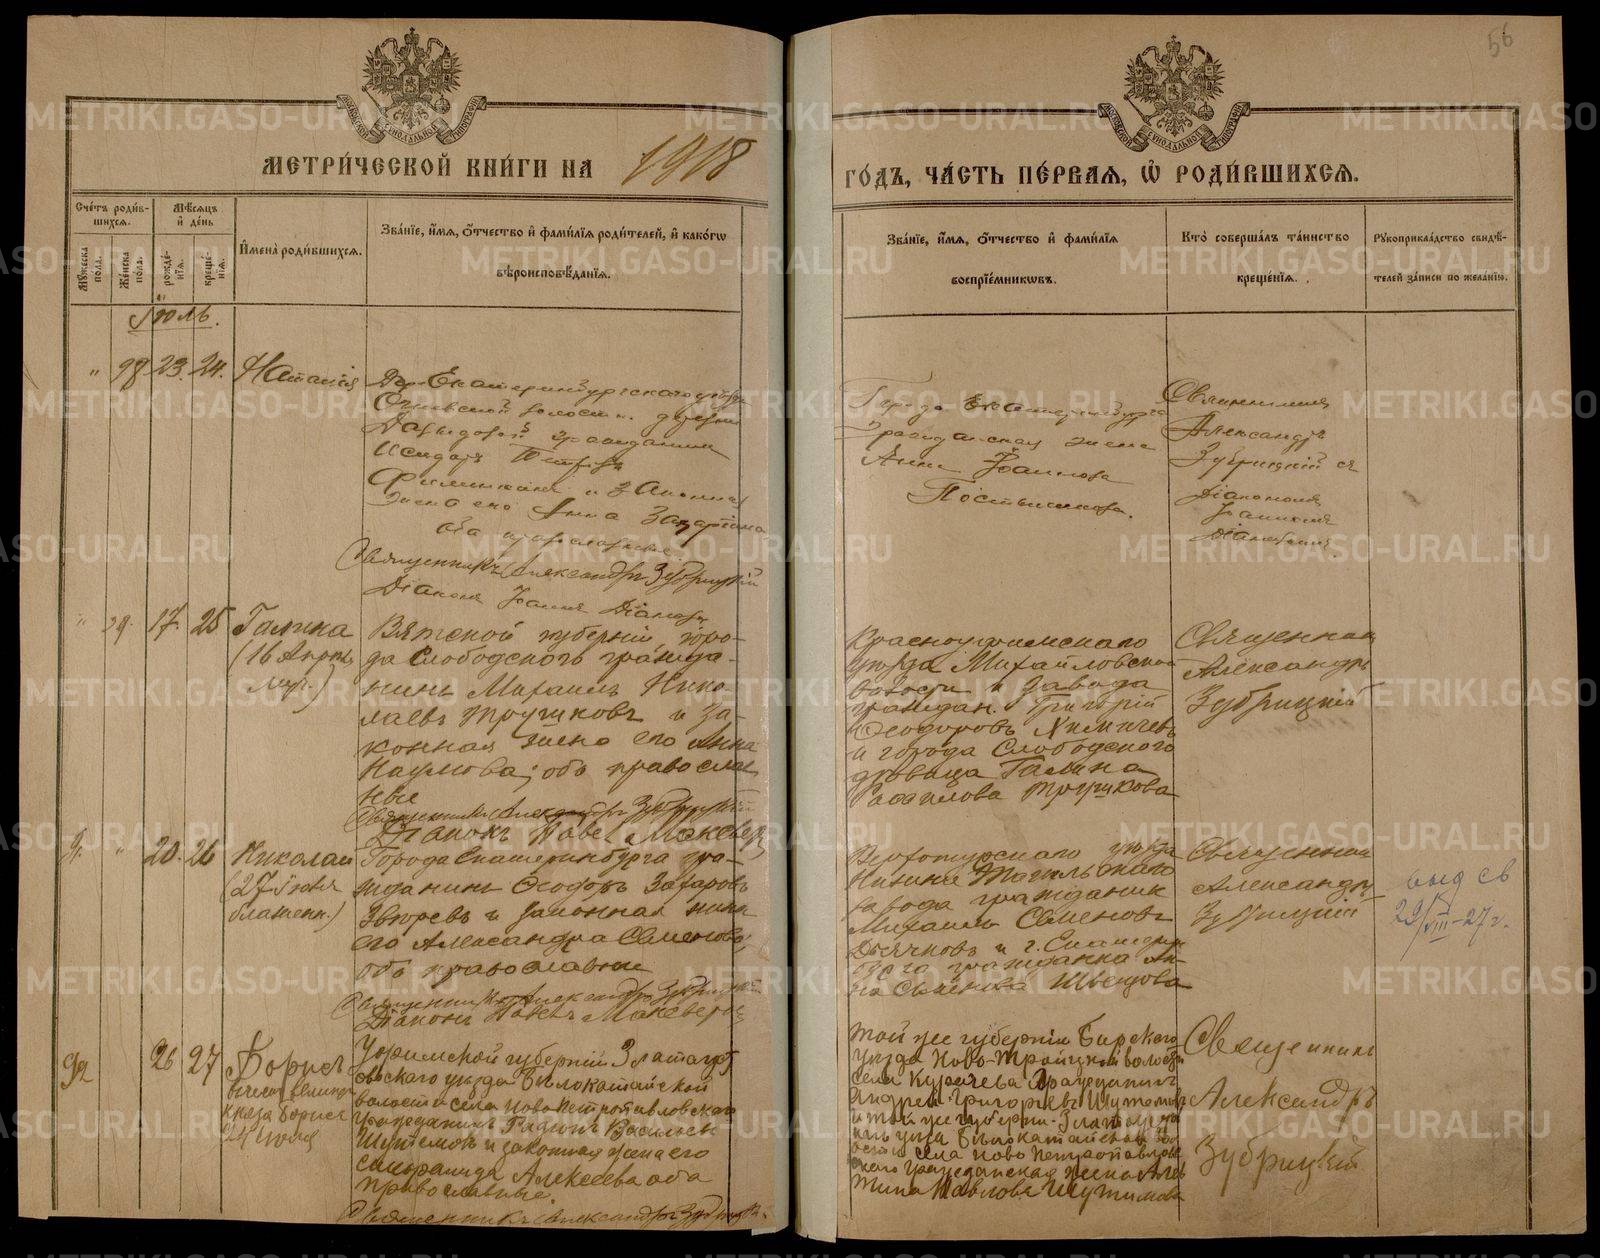 56
МОСКОВСКОЙ СѴНОДАЛЬНОЙ ТИПОГРАФІИ
МОСКОВСКОЙ СѴНОДАЛЬНОЙ ТИПОГРАФІИ
МЕТРИ́ЧЕСКОЙ КНИ́ГИ НА 1918
ГО́ДЪ, ЧА́СТЬ ПЕ́РВАЯ, Ѡ҆ РОДИ́ВШИХСЯ.
Сче́тъ роди́в-
шихся.
Мꙋ́жеска
пола.
Же́нска
пола.
Мѣ́сяцъ
и҆ де́нь
рожде́-
нїя.
креще́-
нїя.
И҆мена̀ роди́вшихся.
Зва́нїе, и҆́мя, ѻ҆́тчество и҆ фами́лїя роди́телей, и҆ како́гѡ
вѣроисповѣ́данїя.
Зва́нїе, и҆́мя, ѻ҆́тчество и҆ фами́лїя
воспрїе́мникѡвъ.
Кто̀ соверша́лъ та́инство
креще́нїя.
Рꙋкоприкла́дство свидѣ́-
телей за́писи по жела́нїю.
Іюль.
" 98 23. 24. Наталія
Екатеринбургскаго уѣзда
волости деревни
гражданинъ
и законная
жена его Анна
оба православные
Священникъ Александръ Зубрицкій
Діаконъ Іоаннъ
Города Екатеринбурга
гражданская жена
Анна Іоаннова
Постникова.
Священникъ
Александръ
Зубрицкій съ
Діакономъ
Іоанномъ
" 99. 17. 25 Галина
(16 Апрѣл.
муч.)
Вятской губерніи, горо-
да Слободского гражда-
нинъ Михаилъ Нико-
лаевъ Трушковъ и за-
конная жена его Анна
Наумова; оба православ
ные
Священникъ Александръ Зубрицкій
Діаконъ Павелъ
Красноуфимскаго
уѣзда Михайловской
волости и завода
граждан. Григорій
Ѳеодоровъ Химичевъ
и города Слободского
дѣвица Галина
Трушкова
Священникъ
Александръ
Зубрицкій
91. " 20. 26 Николай
(27 Іюля
блаженн.)
Города Екатеринбурга гра-
жданинъ Ѳеодоръ Захаровъ
Звѣревъ и законная жена
его Александра Семенова,
оба православные
Священникъ Александръ Зубрицкій
Діаконъ Павелъ
Верхотурскаго уѣзда
Нижне Тагильскаго
завода гражданинъ
Михаилъ Семеновъ
Дьячковъ и г. Екатерин
бурга гражданка Ан-
на Семенова Швецова
Священникъ
Александръ
Зубрицкій
выд св
29/VIII-27 г.
92 26 27 Борисъ
князя Бориса
24 Іюля
Уфимской губерніи Златоуст
овскаго уѣзда Бѣлокатайской
волости села Ново Петропавловскаго
гражданинъ Родіонъ Васильевъ
Шутемовъ и законная жена его
Алексѣева оба
православные.
Священникъ Александръ Зубрицкій.
той же губерніи Бирскаго
уѣзда Ново-Троицкой волости
села Курачева гражданинъ
Андрей Григорьевъ Шутемовъ
и той же губерніи Златоустов
уѣзда Бѣлокатайской
села Ново Петропавлов
скаго гражданская жена
Павлова Шутимова
Священникъ
Александръ
Зубрицкій
METRIKI.GASO-URAL.RU